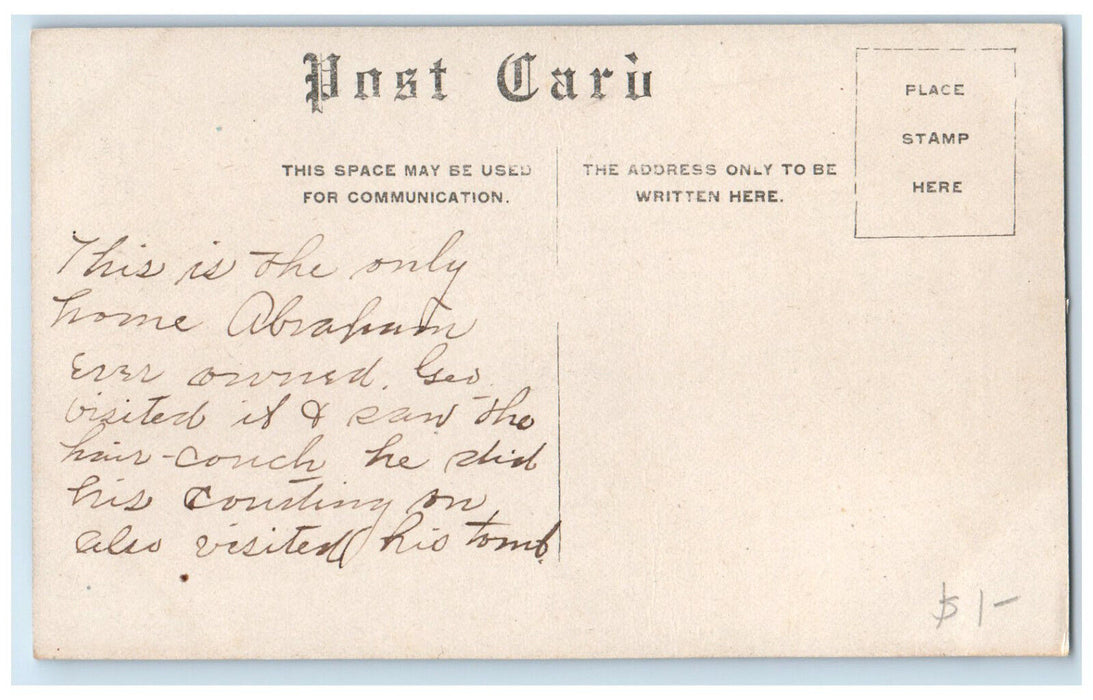 Post Card
PLACE
STAMP
HERE
THIS SPACE MAY BE USED
FOR COMMUNICATION.
THE ADDRESS ONLY TO BE
WRITTEN HERE.
This is the only
home Abraham
ever owned. Geo.
visited it & saw the
hair-couch he did
his courting on
also visited his tomb.
$1-